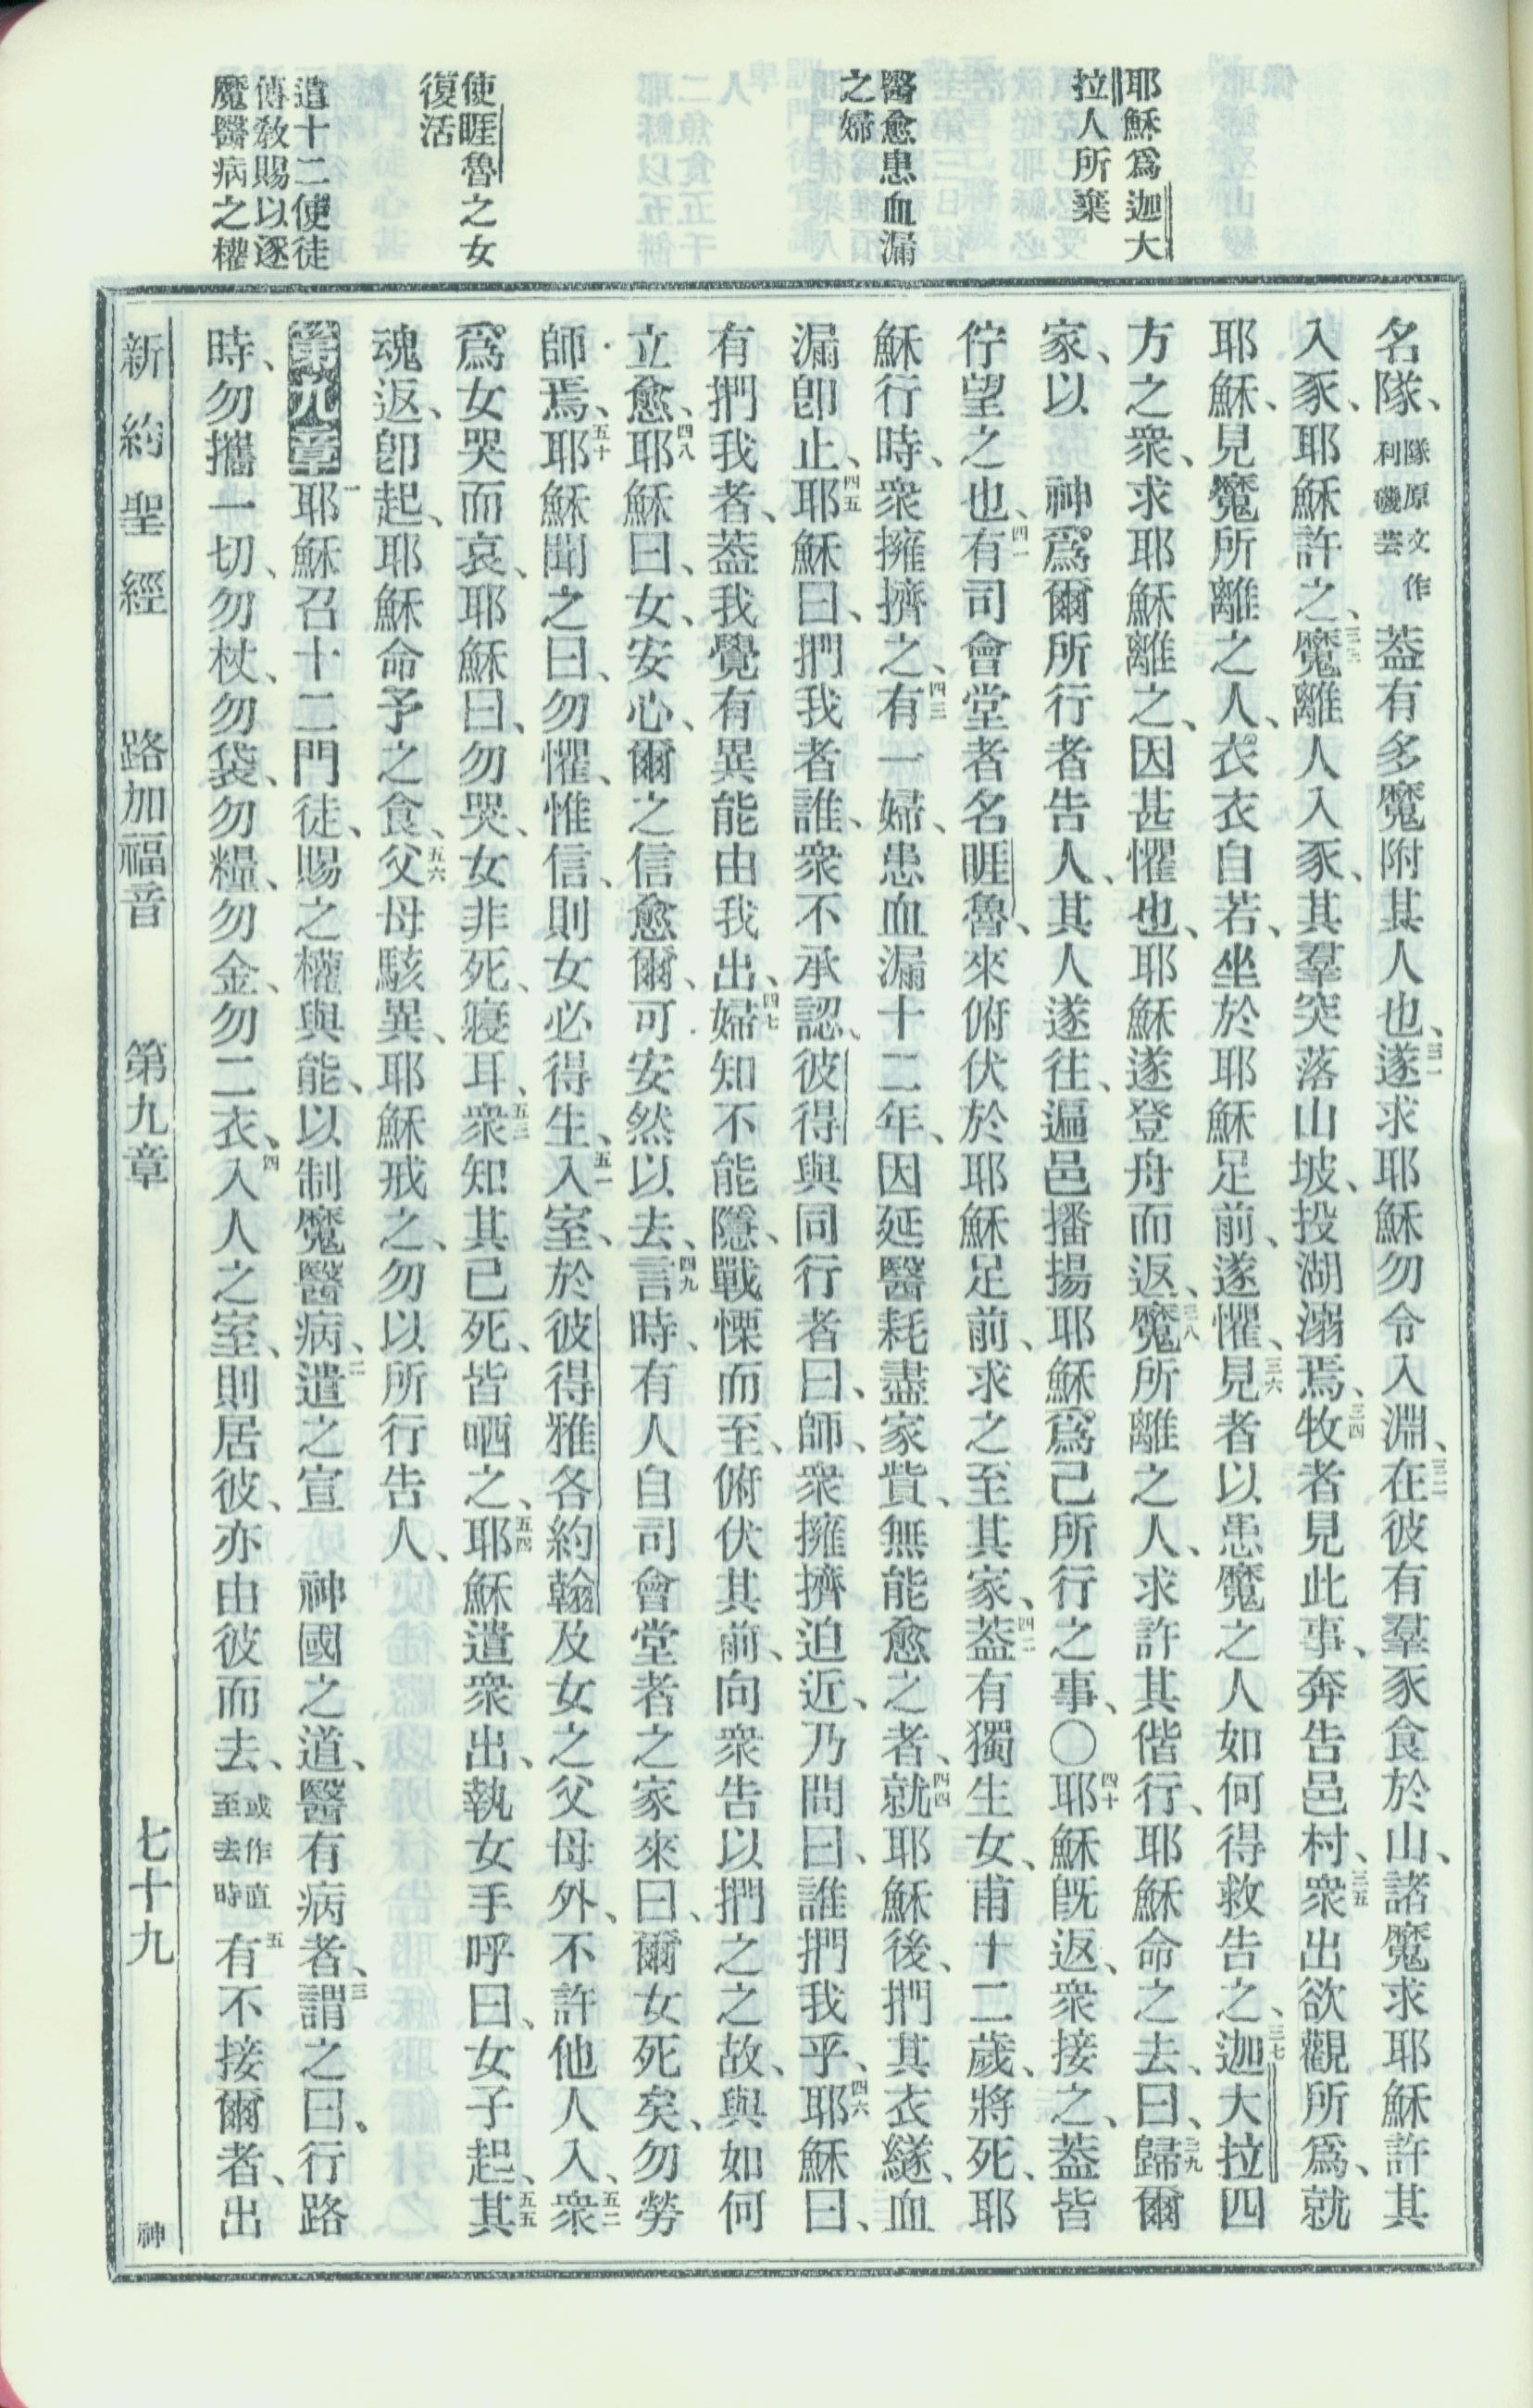 耶穌爲迦大
拉人所棄
醫愈患血漏
之婦
使睚魯之女
復活
遣十二使徒
傳敎賜以逐
魔醫病之權
名隊、隊原文作利磯芸蓋有多魔附其人也、三一遂求耶穌勿令入淵、三二在彼有羣豕食於山、諸魔求耶穌許其
入豕、耶穌許之、三三魔離人入豕、其羣突落山坡、投湖溺焉、三四牧者見此事、奔告邑村、三五衆出欲觀所爲、就
耶穌、見魔所離之人、衣衣自若、坐於耶穌足前、遂懼、三六見者以患魔之人如何得救告之、三七迦大拉四
方之衆、求耶穌離之、因甚懼也、耶穌遂登舟而返、三八魔所離之人、求許其偕行、耶穌命之去、曰、三九歸爾
家、以 神爲爾所行者告人、其人遂往、遍邑播揚耶穌爲己所行之事、〇四十耶穌旣返、衆接之、蓋皆
佇望之也、四一有司會堂者名睚魯、來俯伏於耶穌足前、求之至其家、四二蓋有獨生女、甫十二歲、將死、耶
穌行時、衆擁擠之、四三有一婦、患血漏十二年、因延醫耗盡家貲、無能愈之者、四四就耶穌後、捫其衣繸、血
漏卽止、四五耶穌曰、捫我者誰、衆不承認、彼得與同行者曰、師、衆擁擠迫近、乃問曰、誰捫我乎、四六耶穌曰、
有捫我者、蓋我覺有異能由我出、四七婦知不能隱、戰慄而至、俯伏其前、向衆告以捫之之故、與如何
立愈、四八耶穌曰、女、安心、爾之信愈爾、可安然以去、四九言時、有人自司會堂者之家來曰、爾女死矣、勿勞
師焉、五十耶穌聞之曰、勿懼、惟信、則女必得生、五一入室、於彼得雅各約翰及女之父母外、不許他人入、五二衆
爲女哭而哀、耶穌曰、勿哭、女非死、寢耳、五三衆知其已死、皆哂之、五四耶穌遣衆出、執女手呼曰、女子起、五五其
魂返、卽起、耶穌命予之食、五六父母駭異、耶穌戒之、勿以所行告人、
第九章一耶穌召十二門徒、賜之權與能、以制魔醫病、二遣之宣 神國之道、醫有病者、三謂之曰、行路
時、勿攜一切、勿杖、勿袋、勿糧、勿金、勿二衣、四入人之室、則居彼、亦由彼而去、或作直至去時五有不接爾者、出
新約聖經 路加福音 第九章 七十九 神